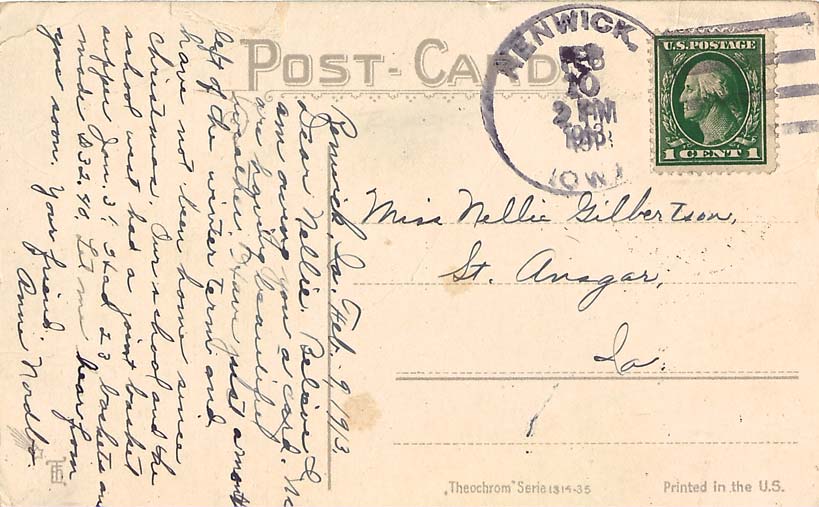 POST-CARD
RENWICK,
FEB
10
2 PM
1913
IOWA
U.S. POSTAGE
1 CENT 1
Miss Nellie Gilbertson,
St. Ansgar,
Ia.
Renwick, Ia. Feb. 9, 1913
Dear Nellie. Believe I
am owing you a card. We
are having beautiful
weather. Have just a month
left of the winter term and
have not been home since
Christmas. Our school and the
school west had a joint basket
supper Jan. 31. Had 23 baskets and
made $32.40. Let me hear from
you soon. Your friend,
Anna Nordbo.
„Theochrom" Serie 1314-35
Printed in the U.S.